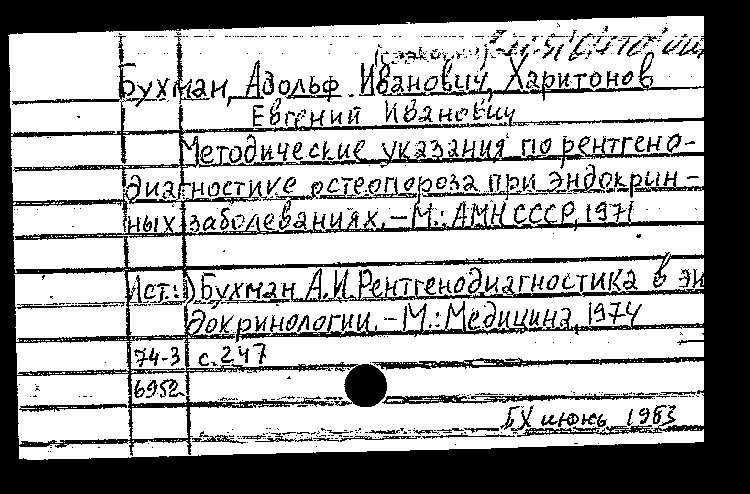 Бухман, Адольф Иванович, Харитонов
Евгений Иванович
Методические указания по рентгено-
диагностике остеопороза при эндокрин-
ных заболеваниях. – М.: АМН СССР, 1971
Ист.: 1) Бухман А.И. Рентгенодиагностика в эн
докринологии. – М.: Медицина, 1974
74-3 с. 247
6952
БХ июнь 1983